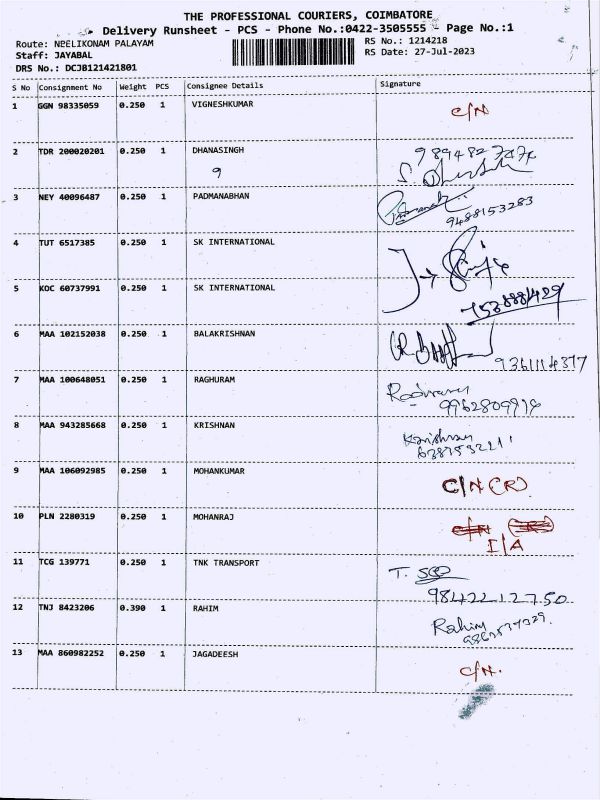 THE PROFESSIONAL COURIERS, COIMBATORE
Delivery Runsheet - PCS - Phone No.:0422-3505555 Page No.:1
Route: NEELIKONAM PALAYAM RS No.: 1214218
Staff: JAYABAL RS Date: 27-Jul-2023
DRS No.: DCJB121421801
S No Consignment No Weight PCS Consignee Details Signature
1 GGN 98335059 0.250 1 VIGNESHKUMAR C/N
2 TDR 200020201 0.250 1 DHANASINGH
9
3 NEY 40096487 0.250 1 PADMANABHAN
9488153283
4 TUT 6517385 0.250 1 SK INTERNATIONAL
5 KOC 60737991 0.250 1 SK INTERNATIONAL
6 MAA 102152038 0.250 1 BALAKRISHNAN
9361114377
7 MAA 100648051 0.250 1 RAGHURAM
8 MAA 943285668 0.250 1 KRISHNAN
Krishnan
9 MAA 106092985 0.250 1 MOHANKUMAR C/N (R)
10 PLN 2280319 0.250 1 MOHANRAJ
I/A
11 TCG 139771 0.250 1 TNK TRANSPORT
9842212750
12 TNJ 8423206 0.390 1 RAHIM Rahim
13 MAA 860982252 0.250 1 JAGADEESH C/N.